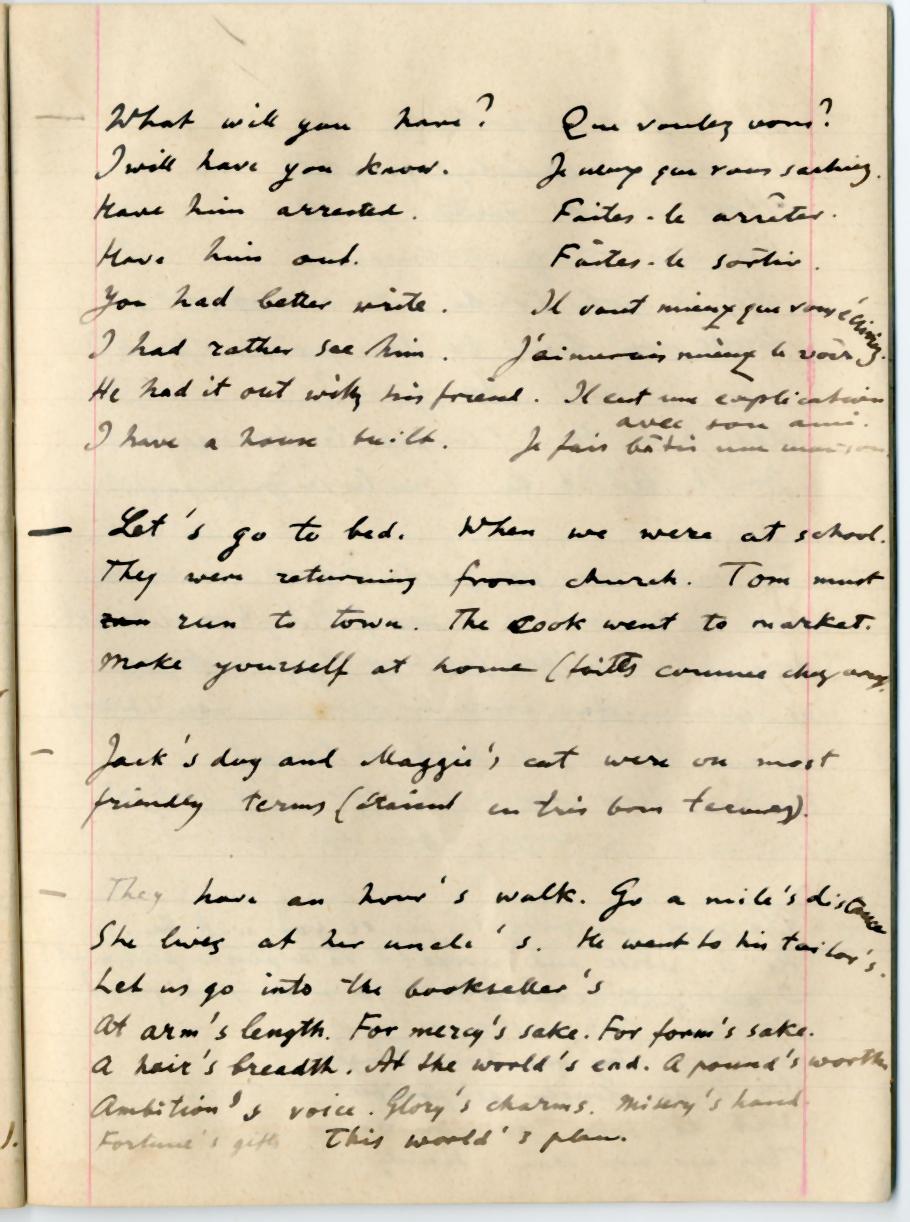 What will you have? Que voulez vous?
I will have you know. Je veux que vous sachiez.
Have him arrested. Faites-le arrêter.
Have him out. Faites-le sortir.
You had better write. Il vaut mieux que vous écriviez.
I had rather see him. J'aimerais mieux le voir
He had it out with his friend. Il eut une explication
avec son ami.
I have a house built. Je fais bâtir une maison
— Let's go to bed. When we were at school.
They were returning from church. Tom must
run to town. The cook went to market.
Make yourself at home (faites comme chez vous
— Jack's dog and Maggie's cat were on most
friendly terms (étaient en très bons termes).
— They have an hour's walk. Go a mile's distance
She lives at her uncle's. He went to his tailor's.
Let us go into the bookseller's
At arm's length. For mercy's sake. For form's sake.
A hair's breadth. At the world's end. A pound's worth
Ambition's voice. Glory's charms. Misery's hand
Fortune's gifts This world's plan.
).